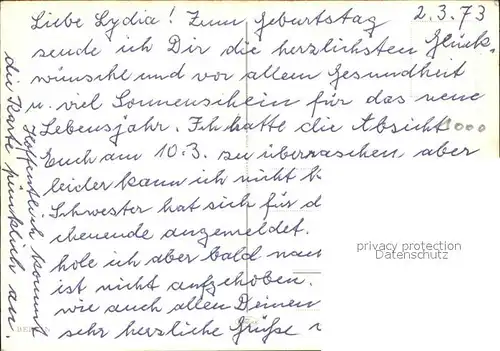 2.3.73
Liebe Lydia! Zum Geburtstag
sende ich Dir die herzlichsten Glück-
wünsche und vor allem Gesundheit
u. viel Sonnenschein für das neue
Lebensjahr. Ich hatte die Absicht
Euch am 10.3. zu überraschen, aber
leider kann ich nicht
Schwester hat sich für d
chenende angemeldet.
hole ich aber bald nach
ist nicht aufgehoben.
wie auch allen Deinen
sehr herzliche Grüße
Hoffentlich kommt
die Karte pünktlich an.
privacy protection
Datenschutz